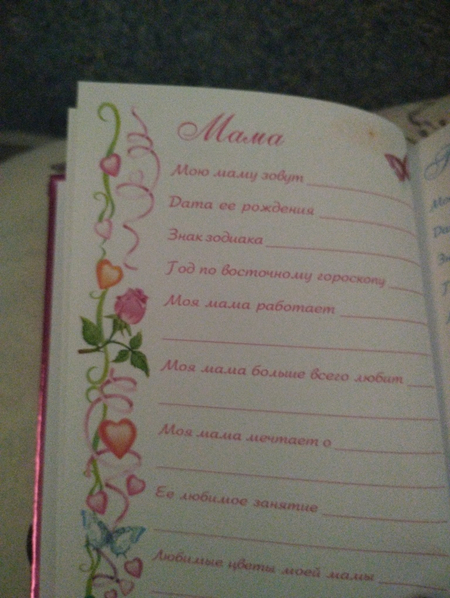 Мама
Мою маму зовут
Дата ее рождения
Знак зодиака
Год по восточному гороскопу
Моя мама работает
Моя мама больше всего любит
Моя мама мечтает о
Ее любимое занятие
Любимые цветы моей мамы